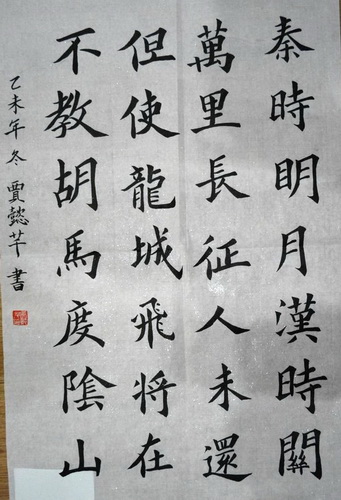 秦時明月漢時關
萬里長征人未還
但使龍城飛将在
不教胡馬度陰山
乙未年冬賈懿芊書